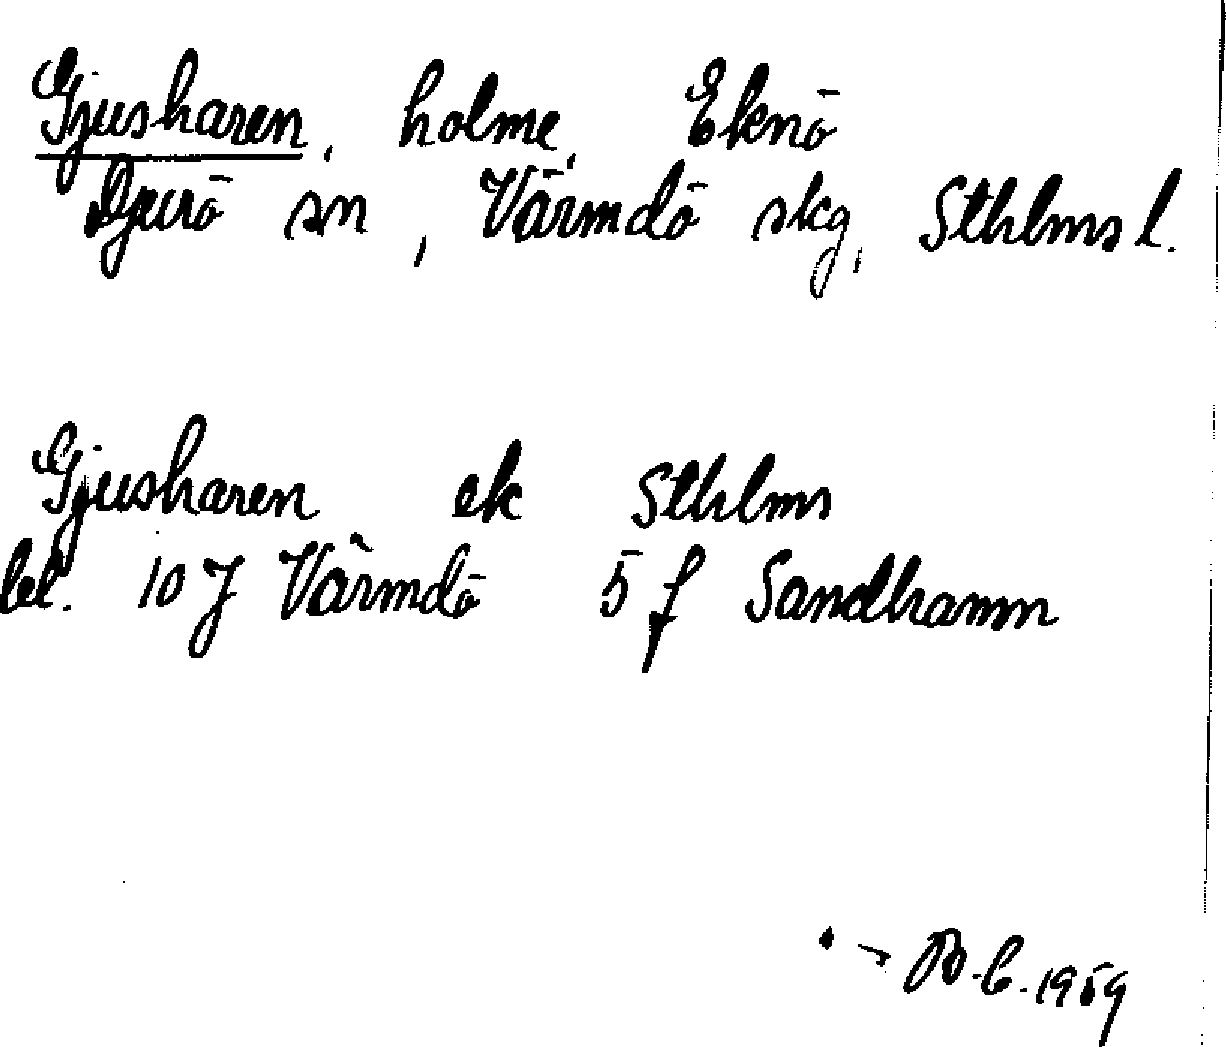 Gjusharen, holme, Eknö
Djurö sn, Värmdö skg, Sthlms l.
Gjusharen ek Sthlms
bl. 10 J Värmdö 5 f Sandhamn
B.C. 1959